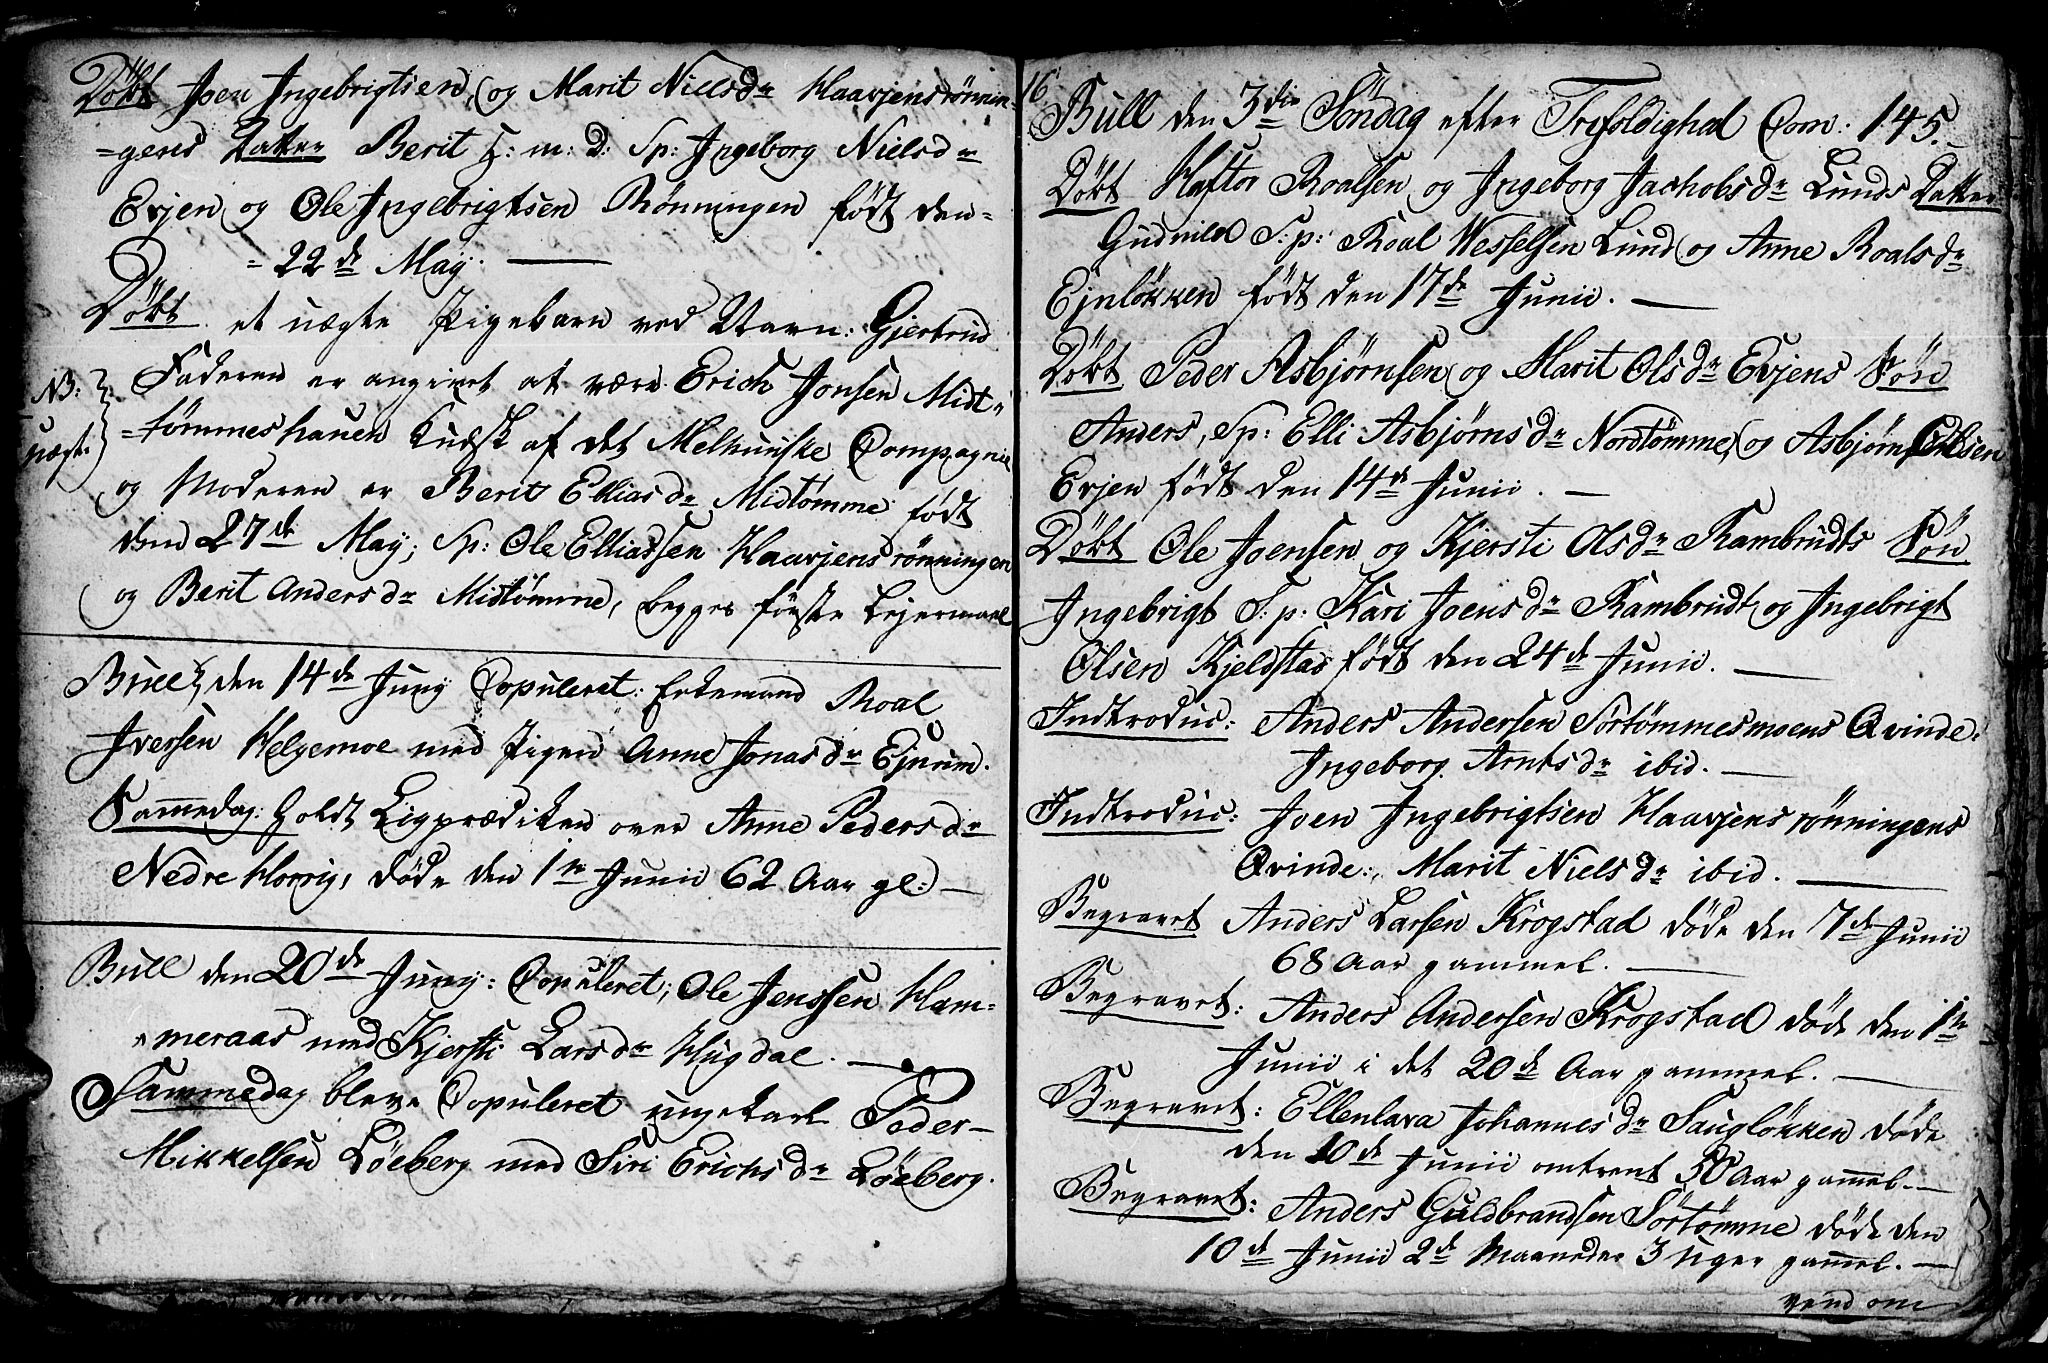 Döbt Joen Ingebrigtsen, og Marit Nielsdr Haavjensrönnin-
=gens Datter Berit H: m: D: Sp: Ingeborg Nielsdr
Evjen og Ole Ingebrigtsen Rönningen födt den=
=22de May. —
Döbt et uægte Pigebarn ved Navn: Gjertrud
Faderen er angivet at være Erich Jonsen Midt=
NB: uægte
=tömmeshauen Kudsk af det Melhuuske Compagnie
og Moderen er Berit Elliasdr Midtömme födt
den 27de May; Sp: Ole Elliassen Haavjensrönningen
og Berit Andersdr Midtömme, begges förste Lejermaal
Bull den 14de Juny Copuleret: Enkemand Roal
Iversen Helgemoe med Pigen Anne Jonasdr Ejnrim.
Sammedag: holdt Ligprædiken over Anne Pedersdr
Nedre Horrig, döde den 1te Junii 62 Aar gl: —
Bull den 20de Juny: Copuleret; Ole Jenssen Ham=
=meraas med Kjersti Larsdr Hugdal. —
Sammedag bleve Copuleret ungekarl Peder
Mikkelsen Löeberg med Siri Erichsdr Löeberg.
16
Bull den 3die Söndag efter Trefoldighed Com: 145.
Döbt Haftor Roalsen og Ingeborg Jachobsdr Lunds Datter
Gudniled S:p: Roal Wesselsen Lund og Anne Roalsdr
Ejnlökken födt den 17de Junii. —
Döbt Peder Asbjörnsen og Marit Olsdr Evjens Sön
Anders, Sp: Elli Asbjörnsdr Nordtömme, og Asbjörn Olsen
Evjen födt den 14de Junii. —
Döbt Ole Joensen og Kjersti Olsdr Kambrudts Sön
Ingebrigt S:p: Kari Joensdr Kambrudt og Ingebrigt
Olsen Kjeldstad födt den 24de Junii. —
Indtroduc: Anders Andersen Sörtömmesmoens Qvinde:
Ingeborg Arntsdr ibid. —
Indtroduc: Joen Ingebrigtsen Haavjensrönningens
Qvinde: Marit Nielsdr ibid. —
Begravet Anders Larsen Krogstad döde den 7de Junii
68 Aar gammel. —
Begravet: Anders Andersen Krogstad döde den 1te
Junii i det 20de Aar gammel. —
Begravet: Ellenlava Johannesdr Sauglökken döde
den 10de Junii omtrent 50 Aar gammel. —
Begravet: Anders Guldbrandsen Sörtömme döde den
10de Junii 2de Maaneder 3 uger gammel. —
vend om